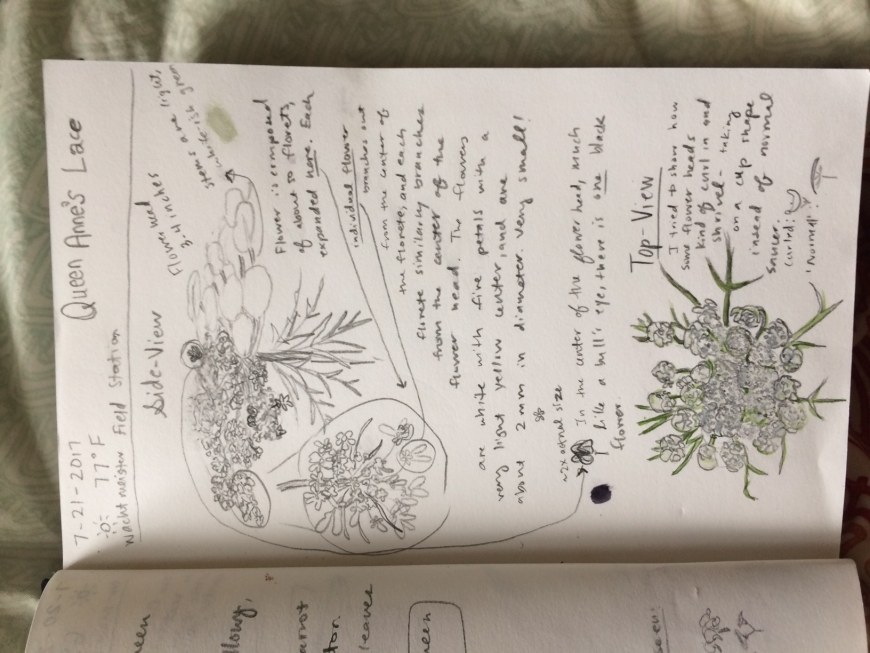 7-21-2017
77°F
Wachtmeister Field Station
Queen Anne's Lace
Side-View
Flower head
3-4 inches
stems are light,
white-ish green
Flower is composed
of about 50 florets,
expanded here. Each
individual flower
branches out
from the center of
the florete, and each
florete similarly branches
from the center of the
flower head. The flowers
are white with five petals with a
very light yellow center, and are
about 2mm in diameter. Very small!
~2x actual size
In the center of the flower head, much
like a bull's eye, there is one black
flower.
Top-View
I tried to show how
some flower heads
kind of curl in and
shrivel - taking
on a cup shape
instead of normal
saucer.
Curled:
'Normal':
ueen
llowy,
arrot
tor.
leaves
een